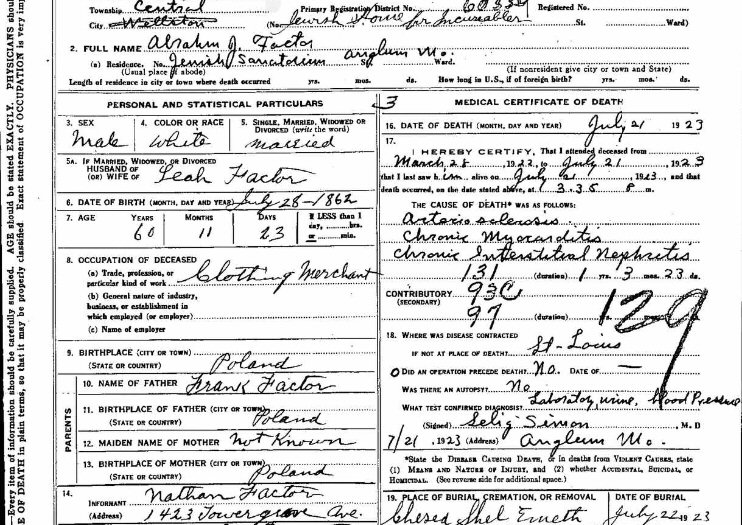 Township Central Primary Registration District No. 6033 Registered No.
City Wellston (No. Jewish Home for Incurables St. Ward)
2. FULL NAME Abraham J. Factor
(a) Residence. No. Jewish Sanatorium St. Ward. Anglum Mo.
(Usual place of abode) (If nonresident give city or town and State)
Length of residence in city or town where death occurred yrs. mos. ds. How long in U.S., if of foreign birth? yrs. mos. ds.
PERSONAL AND STATISTICAL PARTICULARS
3. SEX 4. COLOR OR RACE 5. SINGLE, MARRIED, WIDOWED OR
DIVORCED (write the word)
Male White Married
5A. IF MARRIED, WIDOWED, OR DIVORCED
HUSBAND OF
(OR) WIFE OF Leah Factor
6. DATE OF BIRTH (MONTH, DAY AND YEAR) July 28-1862
7. AGE YEARS MONTHS DAYS If LESS than 1
day, hrs.
60 11 23 or min.
8. OCCUPATION OF DECEASED
(a) Trade, profession, or
particular kind of work Clothing Merchant
(b) General nature of industry,
business, or establishment in
which employed (or employer)
(c) Name of employer
9. BIRTHPLACE (CITY OR TOWN)
(STATE OR COUNTRY) Poland
PARENTS
10. NAME OF FATHER Frank Factor
11. BIRTHPLACE OF FATHER (CITY OR TOWN)
(STATE OR COUNTRY) Poland
12. MAIDEN NAME OF MOTHER Not Known
13. BIRTHPLACE OF MOTHER (CITY OR TOWN)
(STATE OR COUNTRY) Poland
14.
INFORMANT Nathan Factor
(Address) 1423 Towergrove Ave.
3 MEDICAL CERTIFICATE OF DEATH
16. DATE OF DEATH (MONTH, DAY AND YEAR) July 21 1923
17.
I HEREBY CERTIFY, That I attended deceased from
March 28, 1922, to July 21 1923
that I last saw him alive on July 21 1923, and that
death occurred, on the date stated above, at 3.35 P m.
THE CAUSE OF DEATH* WAS AS FOLLOWS:
Arterio sclerosis
Chronic Myocarditis
Chronic Interstitial Nephritis
131 (duration) 1 yrs. 3 mos. 23 ds.
CONTRIBUTORY 93C
(SECONDARY)
97 (duration) 129
18. WHERE WAS DISEASE CONTRACTED
IF NOT AT PLACE OF DEATH? St-Louis
DID AN OPERATION PRECEDE DEATH? No. DATE OF
WAS THERE AN AUTOPSY? No
WHAT TEST CONFIRMED DIAGNOSIS? Laboratory, urine, blood Pressure
(Signed) Selig Simon, M. D
7/21, 1923 (Address) Anglum Mo.
*State the DISEASE CAUSING DEATH, or in deaths from VIOLENT CAUSES, state
(1) MEANS AND NATURE OF INJURY, and (2) whether ACCIDENTAL, SUICIDAL, or
HOMICIDAL. (See reverse side for additional space.)
19. PLACE OF BURIAL, CREMATION, OR REMOVAL DATE OF BURIAL
Chesed Shel Emeth July 22 1923
Every item of information should be carefully supplied. AGE should be stated EXACTLY. PHYSICIANS should
E OF DEATH in plain terms, so that it may be properly classified. Exact statement of OCCUPATION is very imp